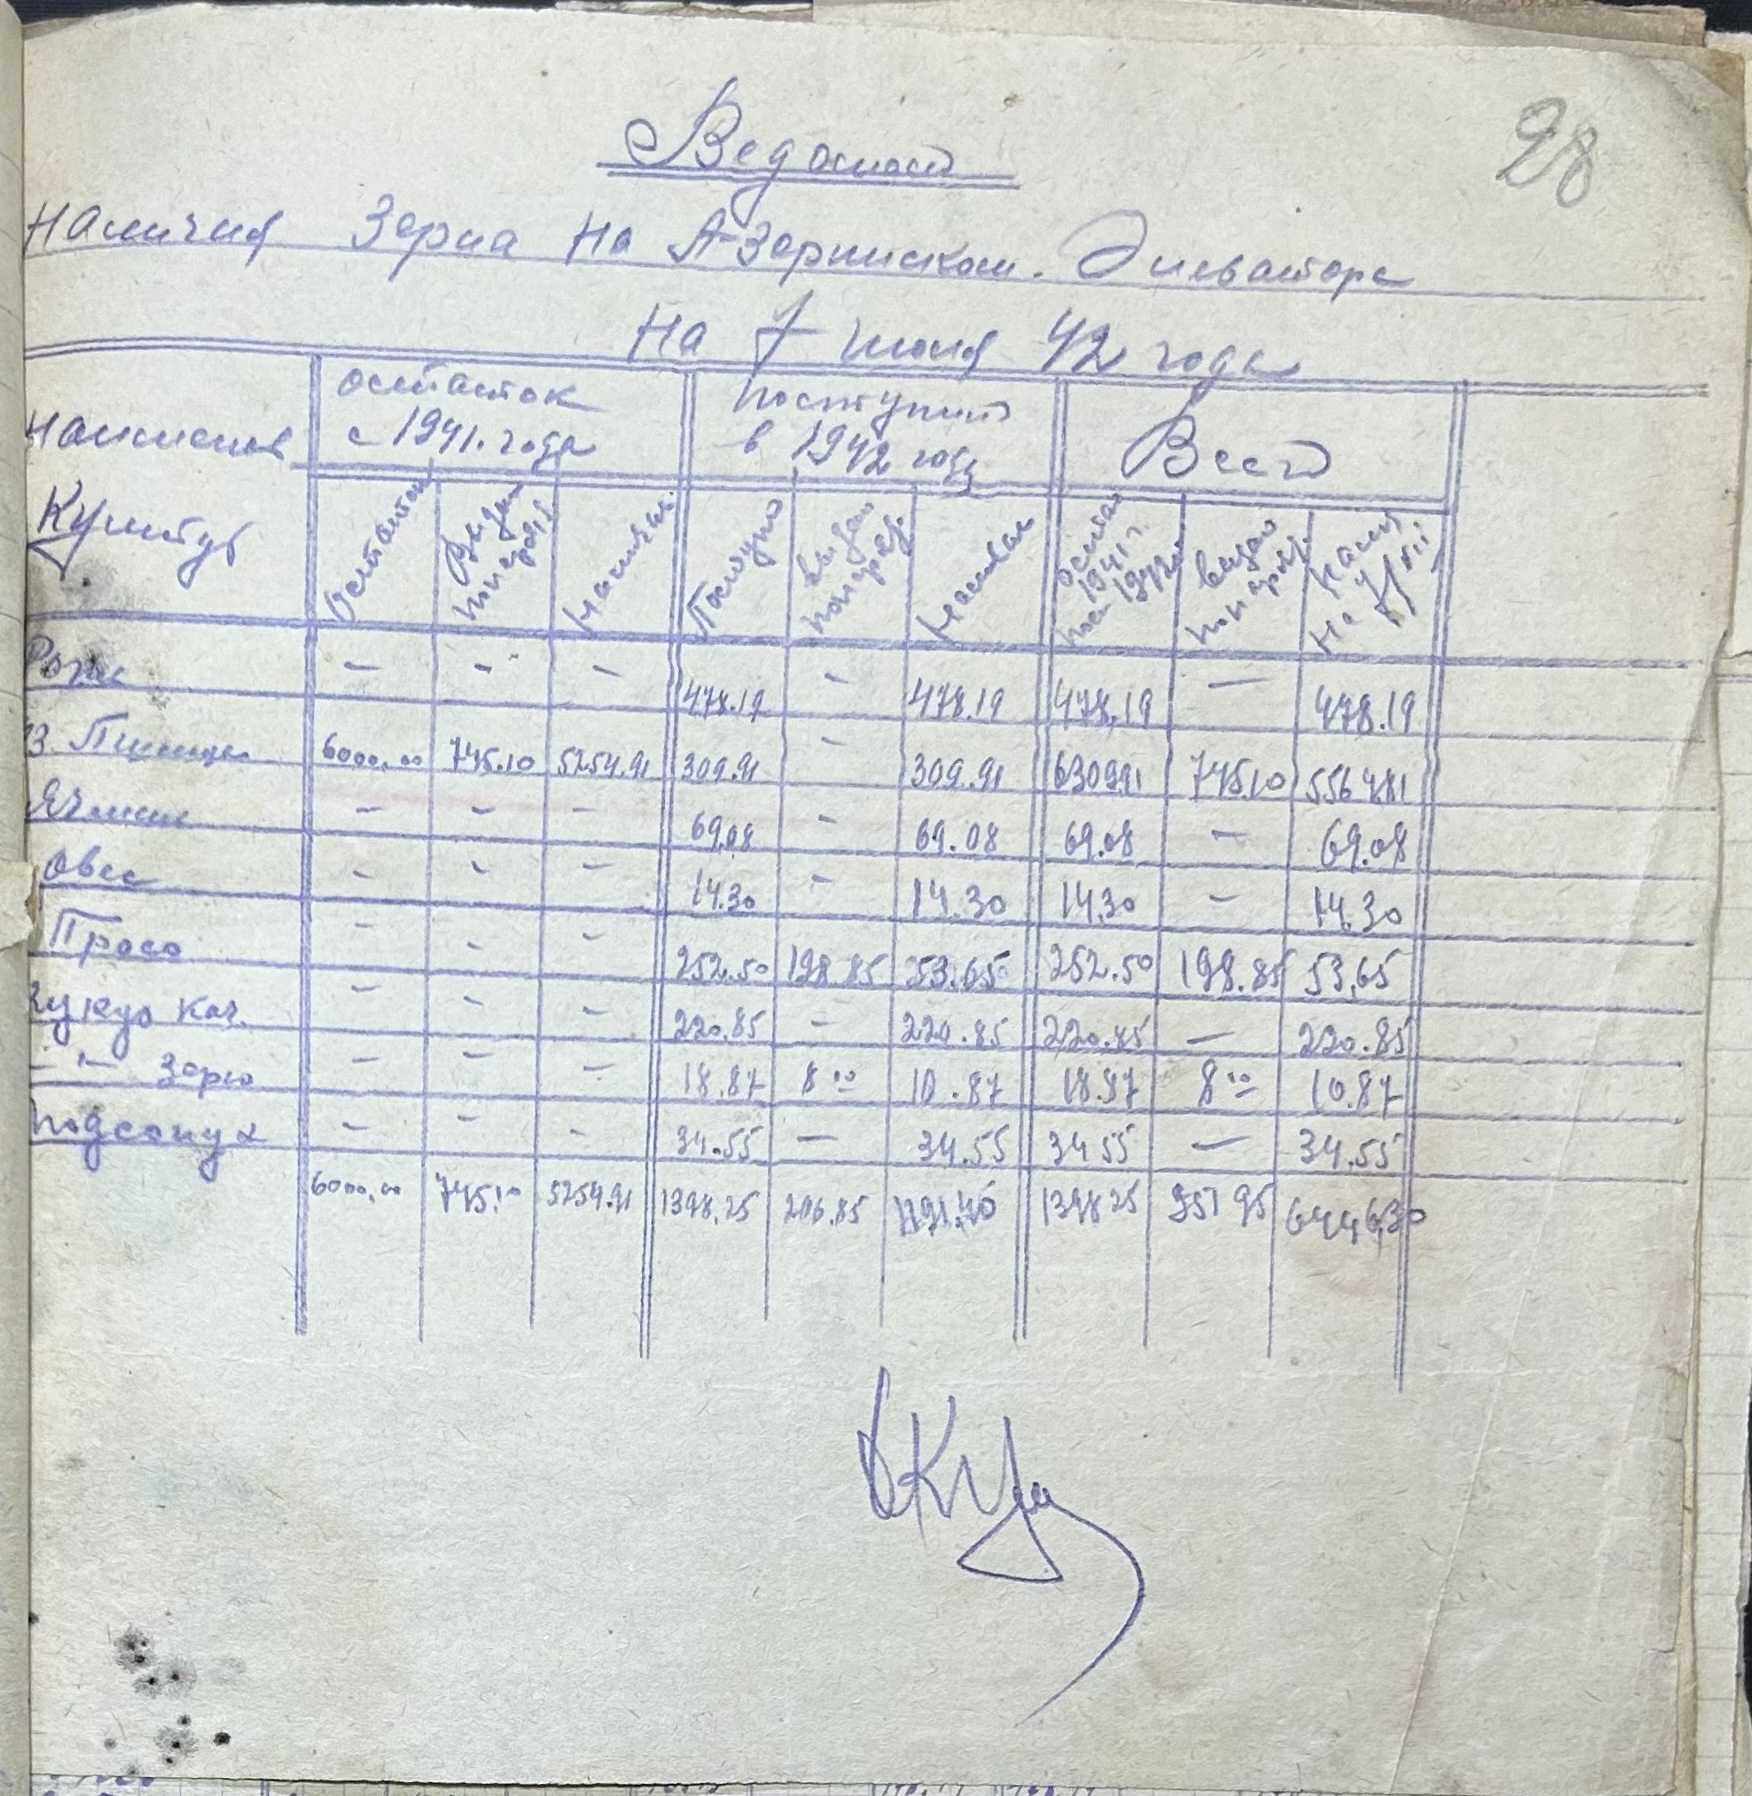 28
Ведомост
Наличия Зерна На А-Зеринском. Элеваторе
На 7 июля 42 года
Наименов Культур | остаток с 1941. года | поступил в 1942 году | Всего
Остаток | Выдан по наряд | Наличие | Поступило | выдано по наряд. | Наличие | остаток 1941 г. пос 1942 | выдано по наряд. | Налич На 7/VII
Рожь | — | - | - | 478.19 | - | 478.19 | 478,19 | — | 478.19
Пшеница | 6000,00 | 745.10 | 5254.91 | 309.91 | - | 309.91 | 630991 | 745.10 | 5564.81
Ячмень | - | - | - | 69.08 | - | 69.08 | 69.08 | - | 69.08
Овес | - | - | - | 14.30 | - | 14.30 | 14,30 | - | 14.30
Просо | - | - | - | 252.50 | 198.85 | 53.65 | 252.50 | 198.85 | 53,65
Кукуо Кач. | - | - | - | 220.85 | - | 220.85 | 220.85 | — | 220.85
-"- Зерно | - | - | - | 18.87 | 8 00 | 10.87 | 18.87 | 8 00 | 10.87
Подсолнух | - | - | - | 34.55 | — | 34.55 | 34 55 | — | 34.55
6000,00 | 745,10 | 5254.91 | 1398,25 | 206.85 | 1191,40 | 1398 25 | 951 95 | 6446,30